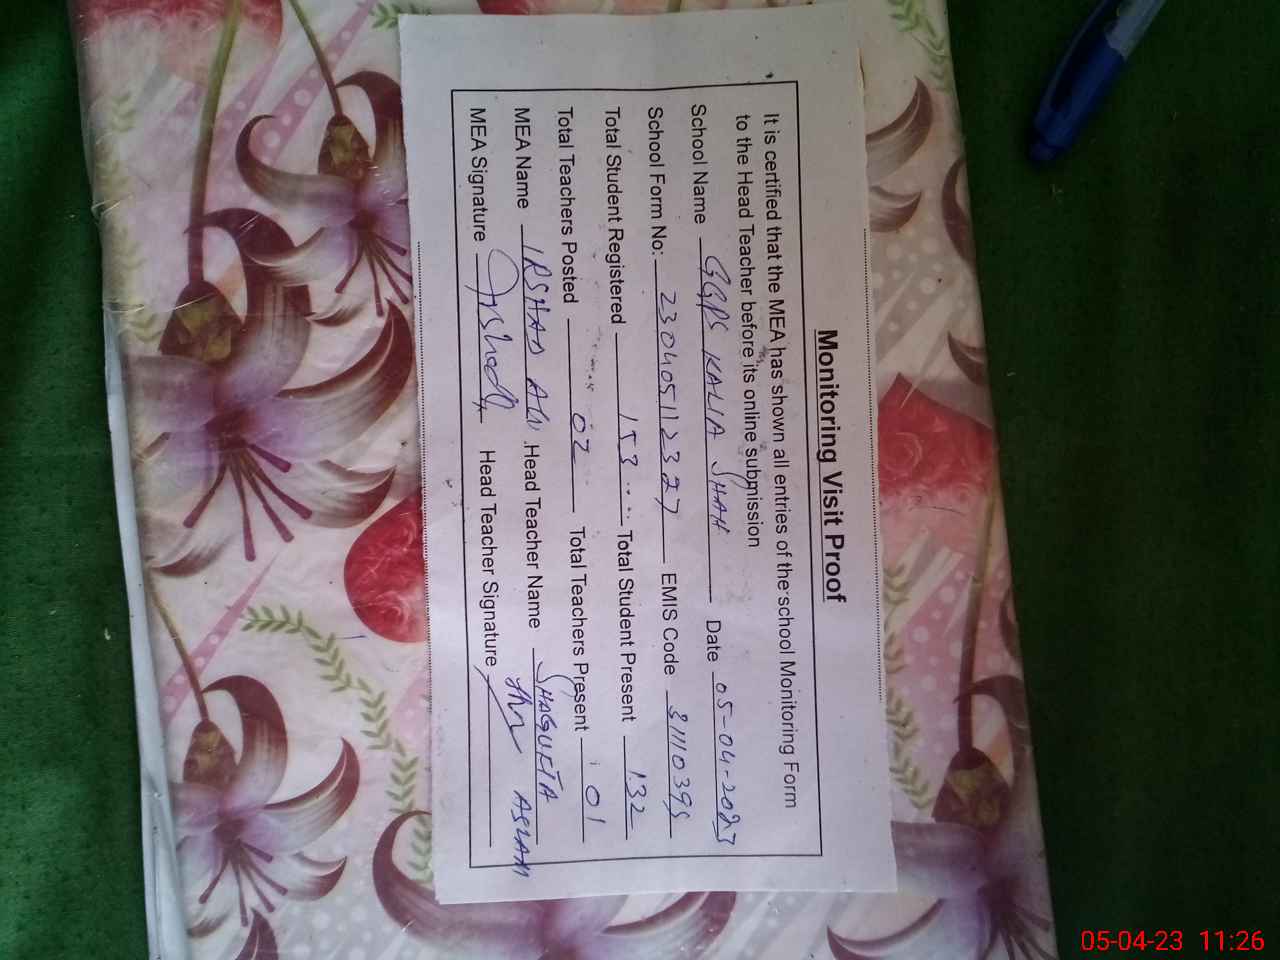 Monitoring Visit Proof
It is certified that the MEA has shown all entries of the school Monitoring Form
to the Head Teacher before its online submission
School Name GGPS KALIA SHAH Date 05-04-2023
School Form No: 230405112327 EMIS Code 31110395
Total Student Registered 153 Total Student Present 132
Total Teachers Posted 02 Total Teachers Present 01
MEA Name IRSHAD ALI Head Teacher Name SHAGUFTA ASLAM
MEA Signature Irshad Head Teacher Signature
05-04-23 11:26